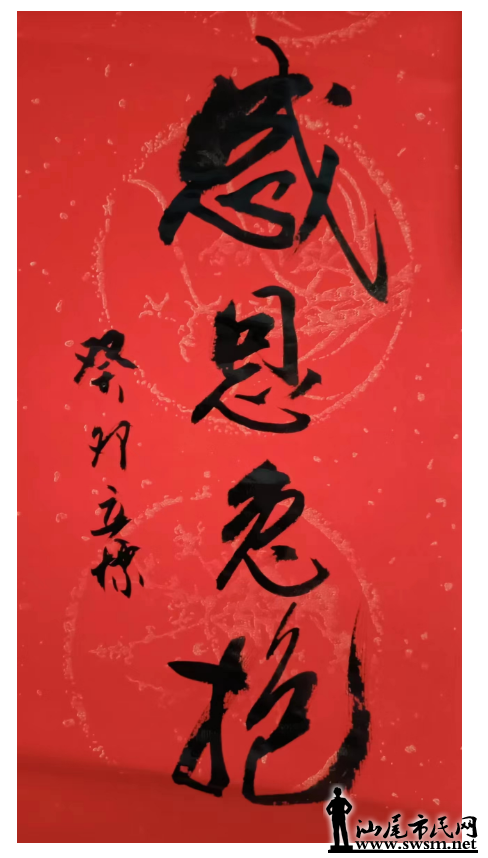 感恩兔抱
癸卯立标
汕尾市民网
www.swsm.net